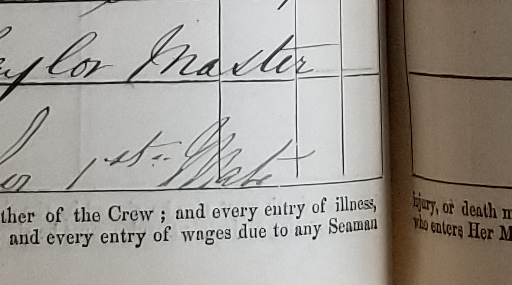 aylor Master
er 1st Mate
ther of the Crew ; and every entry of illness,
and every entry of wages due to any Seaman
injury, or death m
who enters Her M